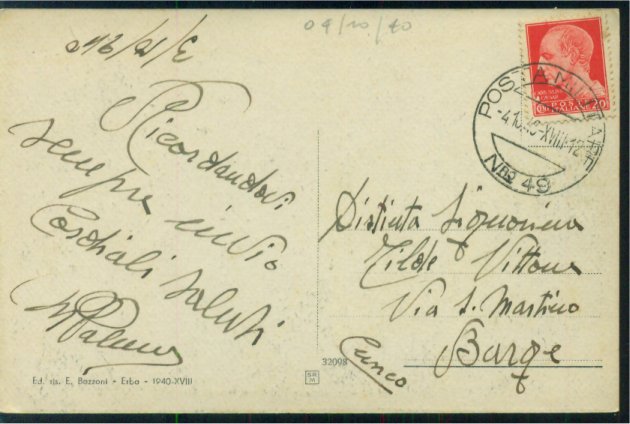 04/10/40
3/10/940
Ricordandovi
sempre invio
Cordiali saluti
POSTA MILITARE
-4.10.40-XVIII-12
No 49
POSTE ITALIANE
20
Distinta Signorina
Tilde Vittone
Via S. Martino
Barge
(Cuneo)
32098
SR
M
Ed. ris. E. Bazzoni - Erba - 1940-XVIII